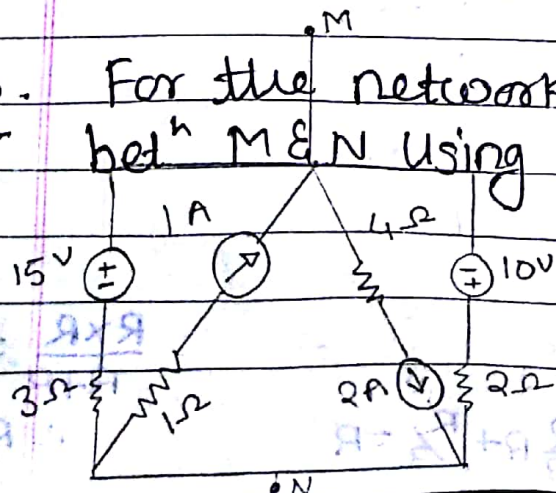 M
For the network
betⁿ M & N Using
1A
4Ω
15V
±
∓
10V
3Ω
1Ω
2A
2Ω
N